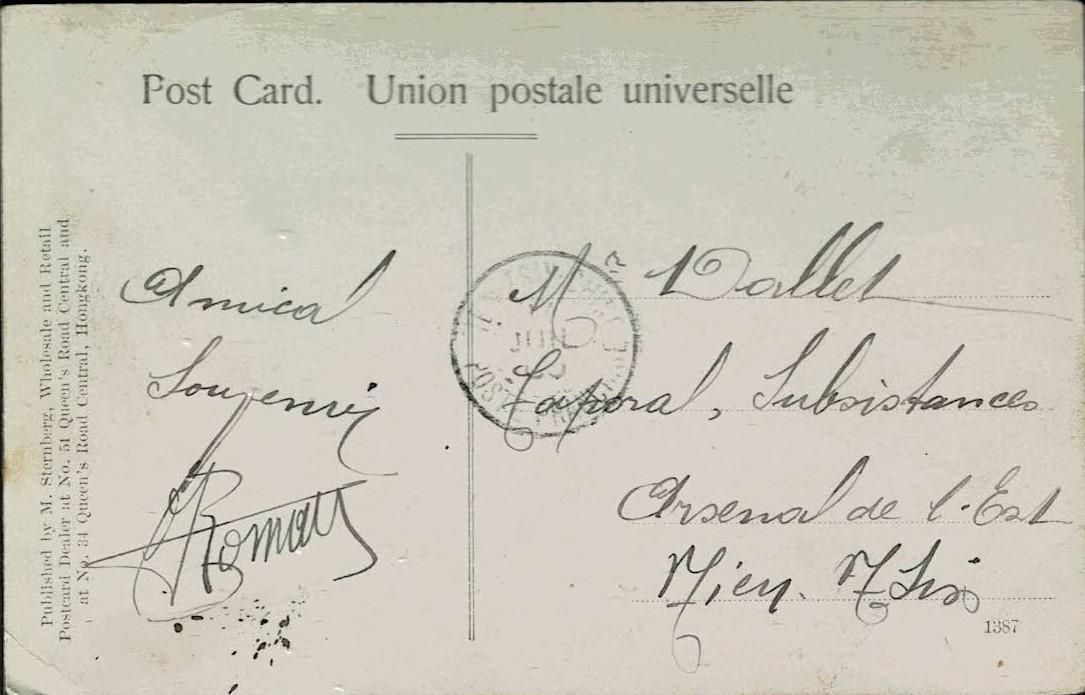 Post Card. Union postale universelle
Published by M. Sternberg, Wholesale and Retail
Postcard Dealer at No. 51 Queen's Road Central and
at No. 34 Queen's Road Central, Hongkong.
Amical
Souvenir
Mr Vallet
Caporal, Subsistances
Arsenal de l'Est
Tien. Tsin
1387